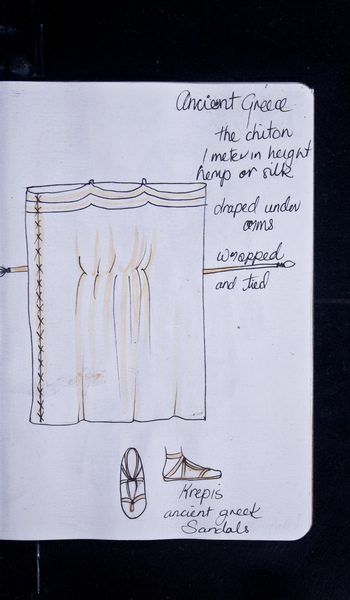 Ancient Greece
the chiton
1 meter in height
hemp or silk
draped under
arms
wrapped
and tied
Krepis
ancient greek
Sandals